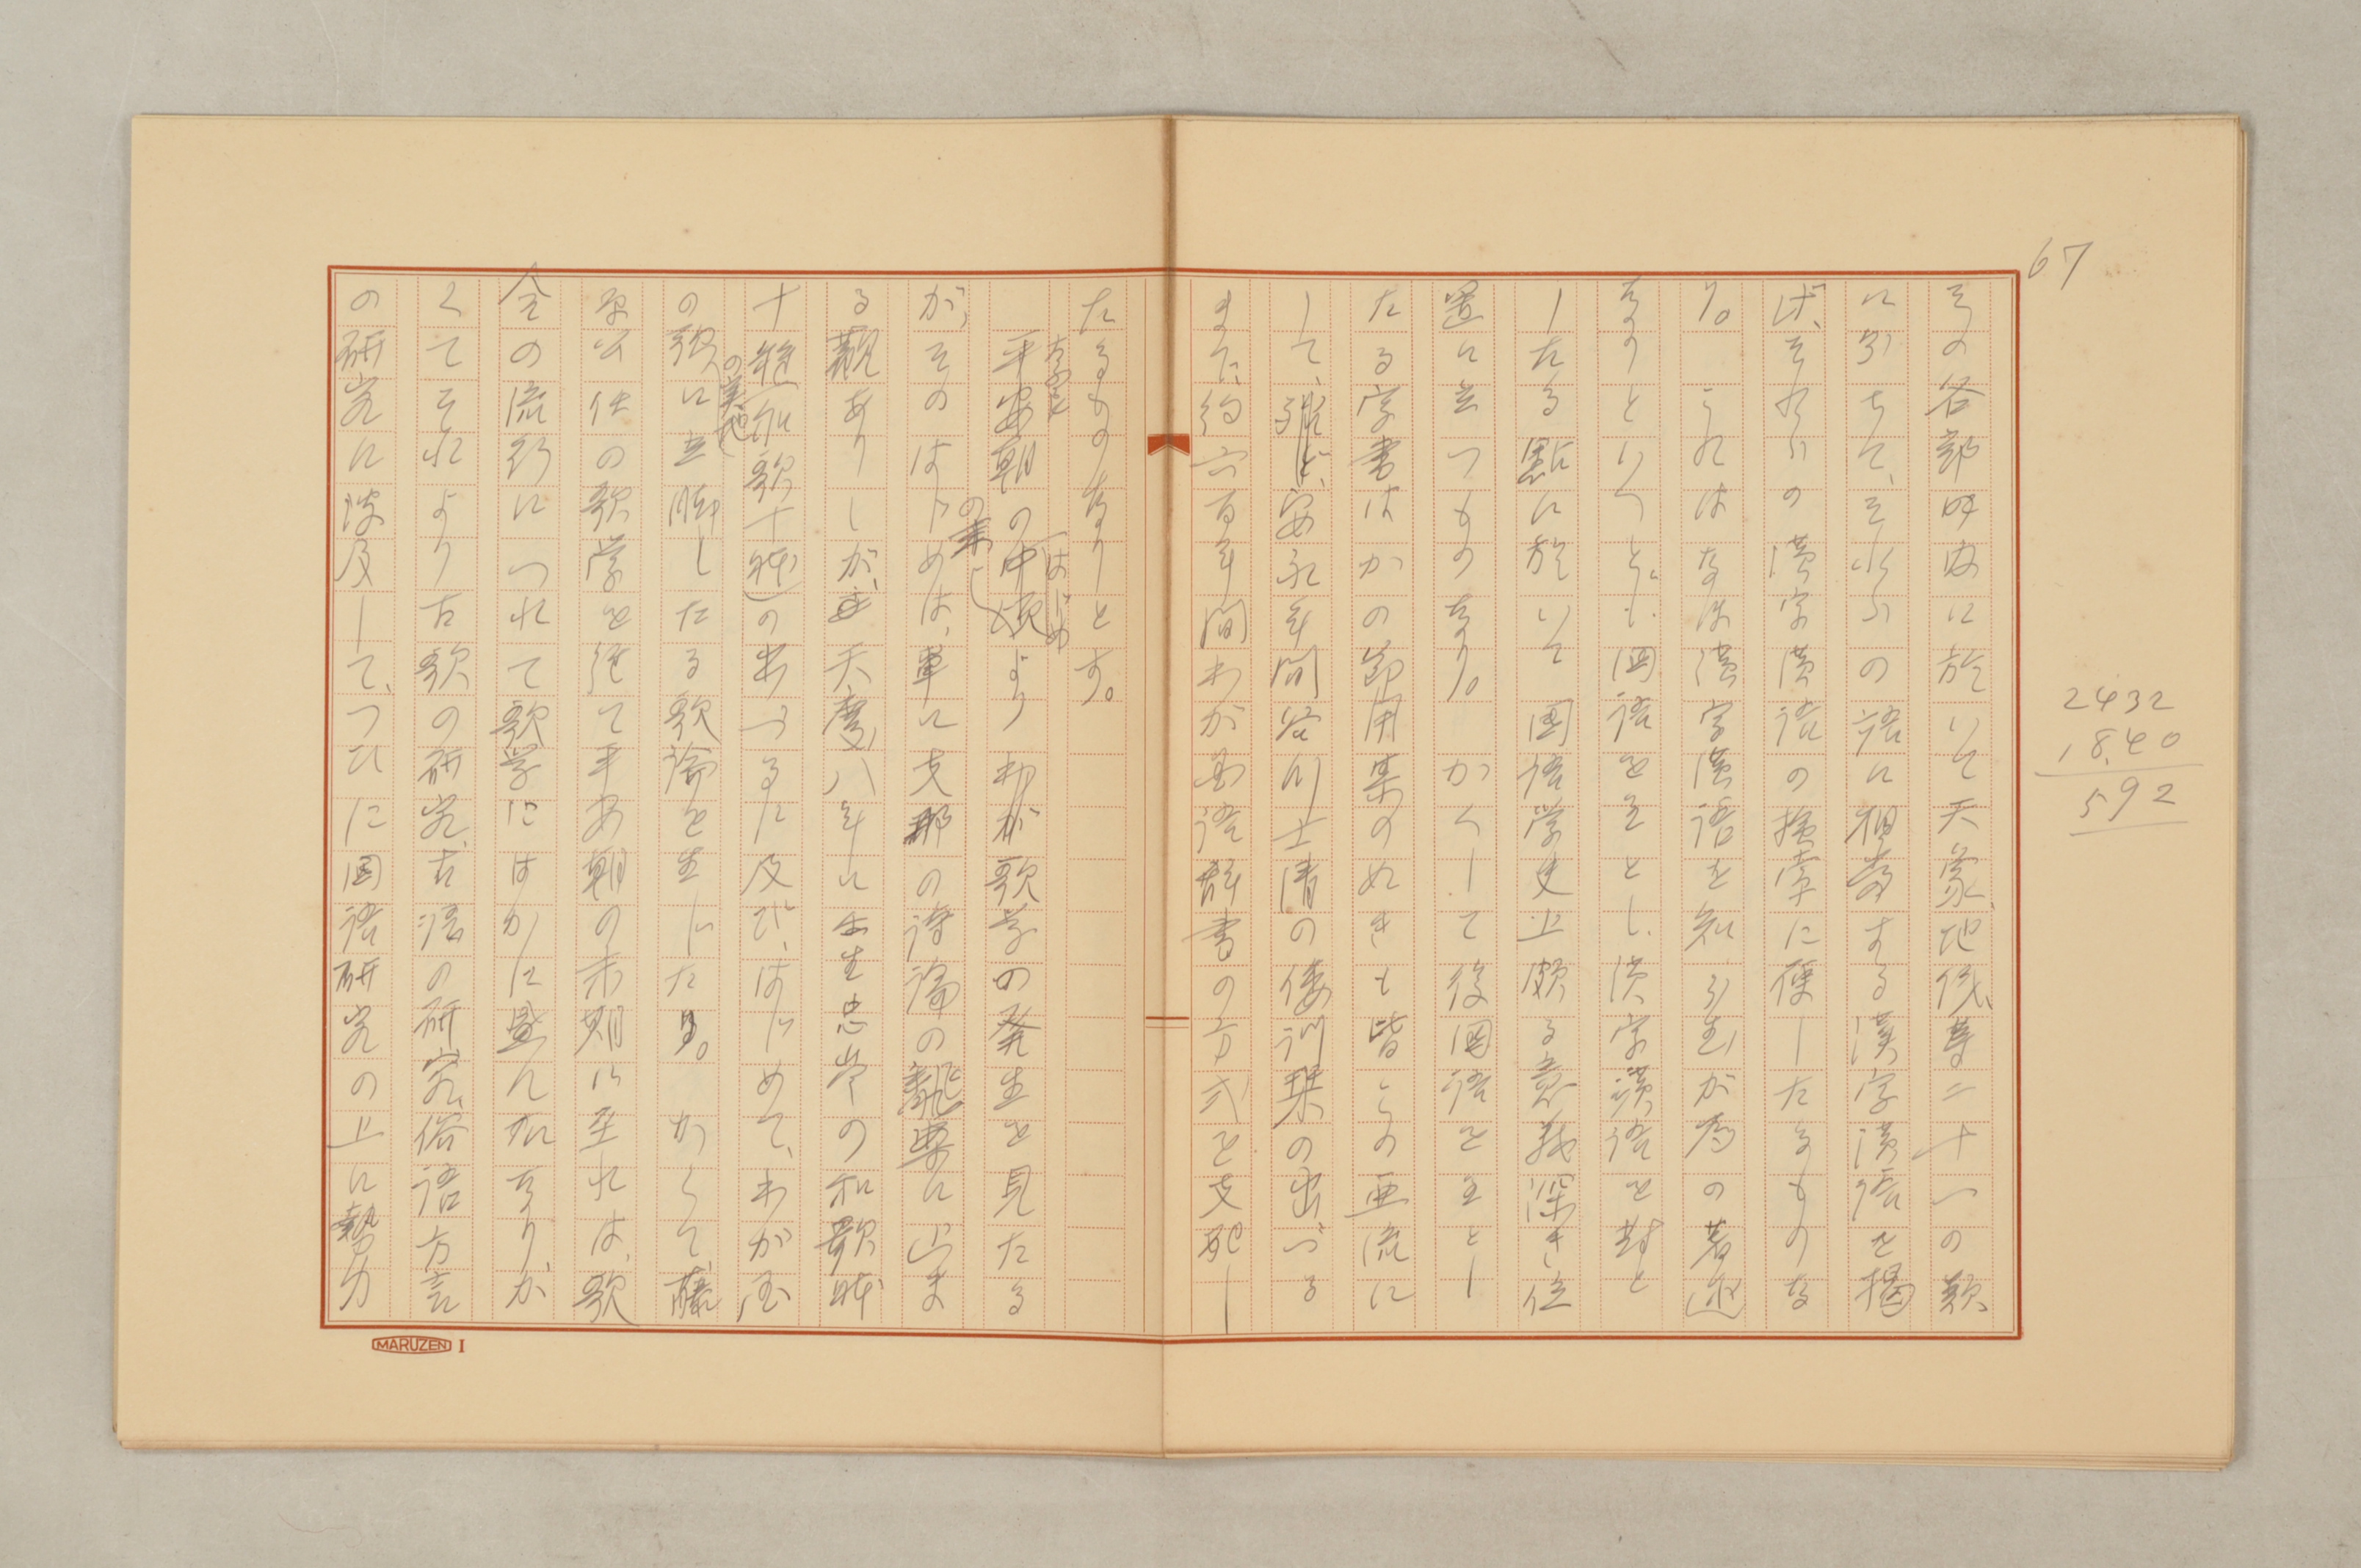 67
その各部門内に於いて天象、地儀等二十一の類
に分ちて、それらの語に相当する漢字漢語を掲
げ、それらの漢字漢語の捜索に便したるものな
り。これはなほ漢字漢語を知らむが為の著述
なりといへども、国語を主とし、漢字漢語を対と
したる點に於いて国語学史上頗る意義深き位
置に立つものなり。かくして後国語を主とし
たる字書はかの節用集の如きも皆この亜流に
して、殆ど、安永年間谷川士清の倭訓栞の出づる
まで、約六百年間わが国語辞書の方式を支配し
たるものなりとす。
平安朝の中頃より わが歌学の発生を見たる
はじめ
が、そのはじめは、単に支那の詩論の飜案に止ま
の素
る観ありしが、天慶八年に壬生忠岑の和歌体
十種(和歌十体)の出づるに及び、はじめて、わが国
の実地
の歌に立脚したる歌論を生じたり。かくて、藤
原公任の歌学を経て平安朝の末期に至れば、歌
合の流行につれて歌学にはかに盛んなり、か
くてそれより古歌の研究、古語の研究、俗語方言
の研究に波及して、つひに国語研究の上に勢力
2432
1840
592
MARUZEN I